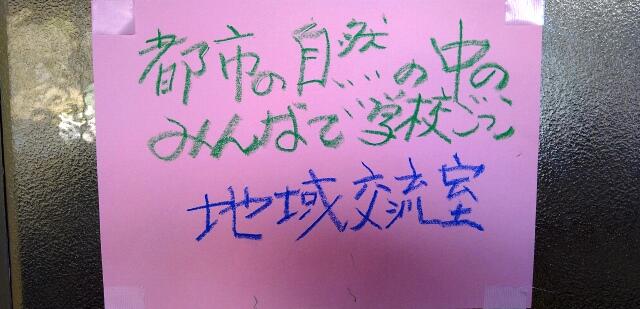 都市の自然の中の
みんなで学校ごっこ
地域交流室